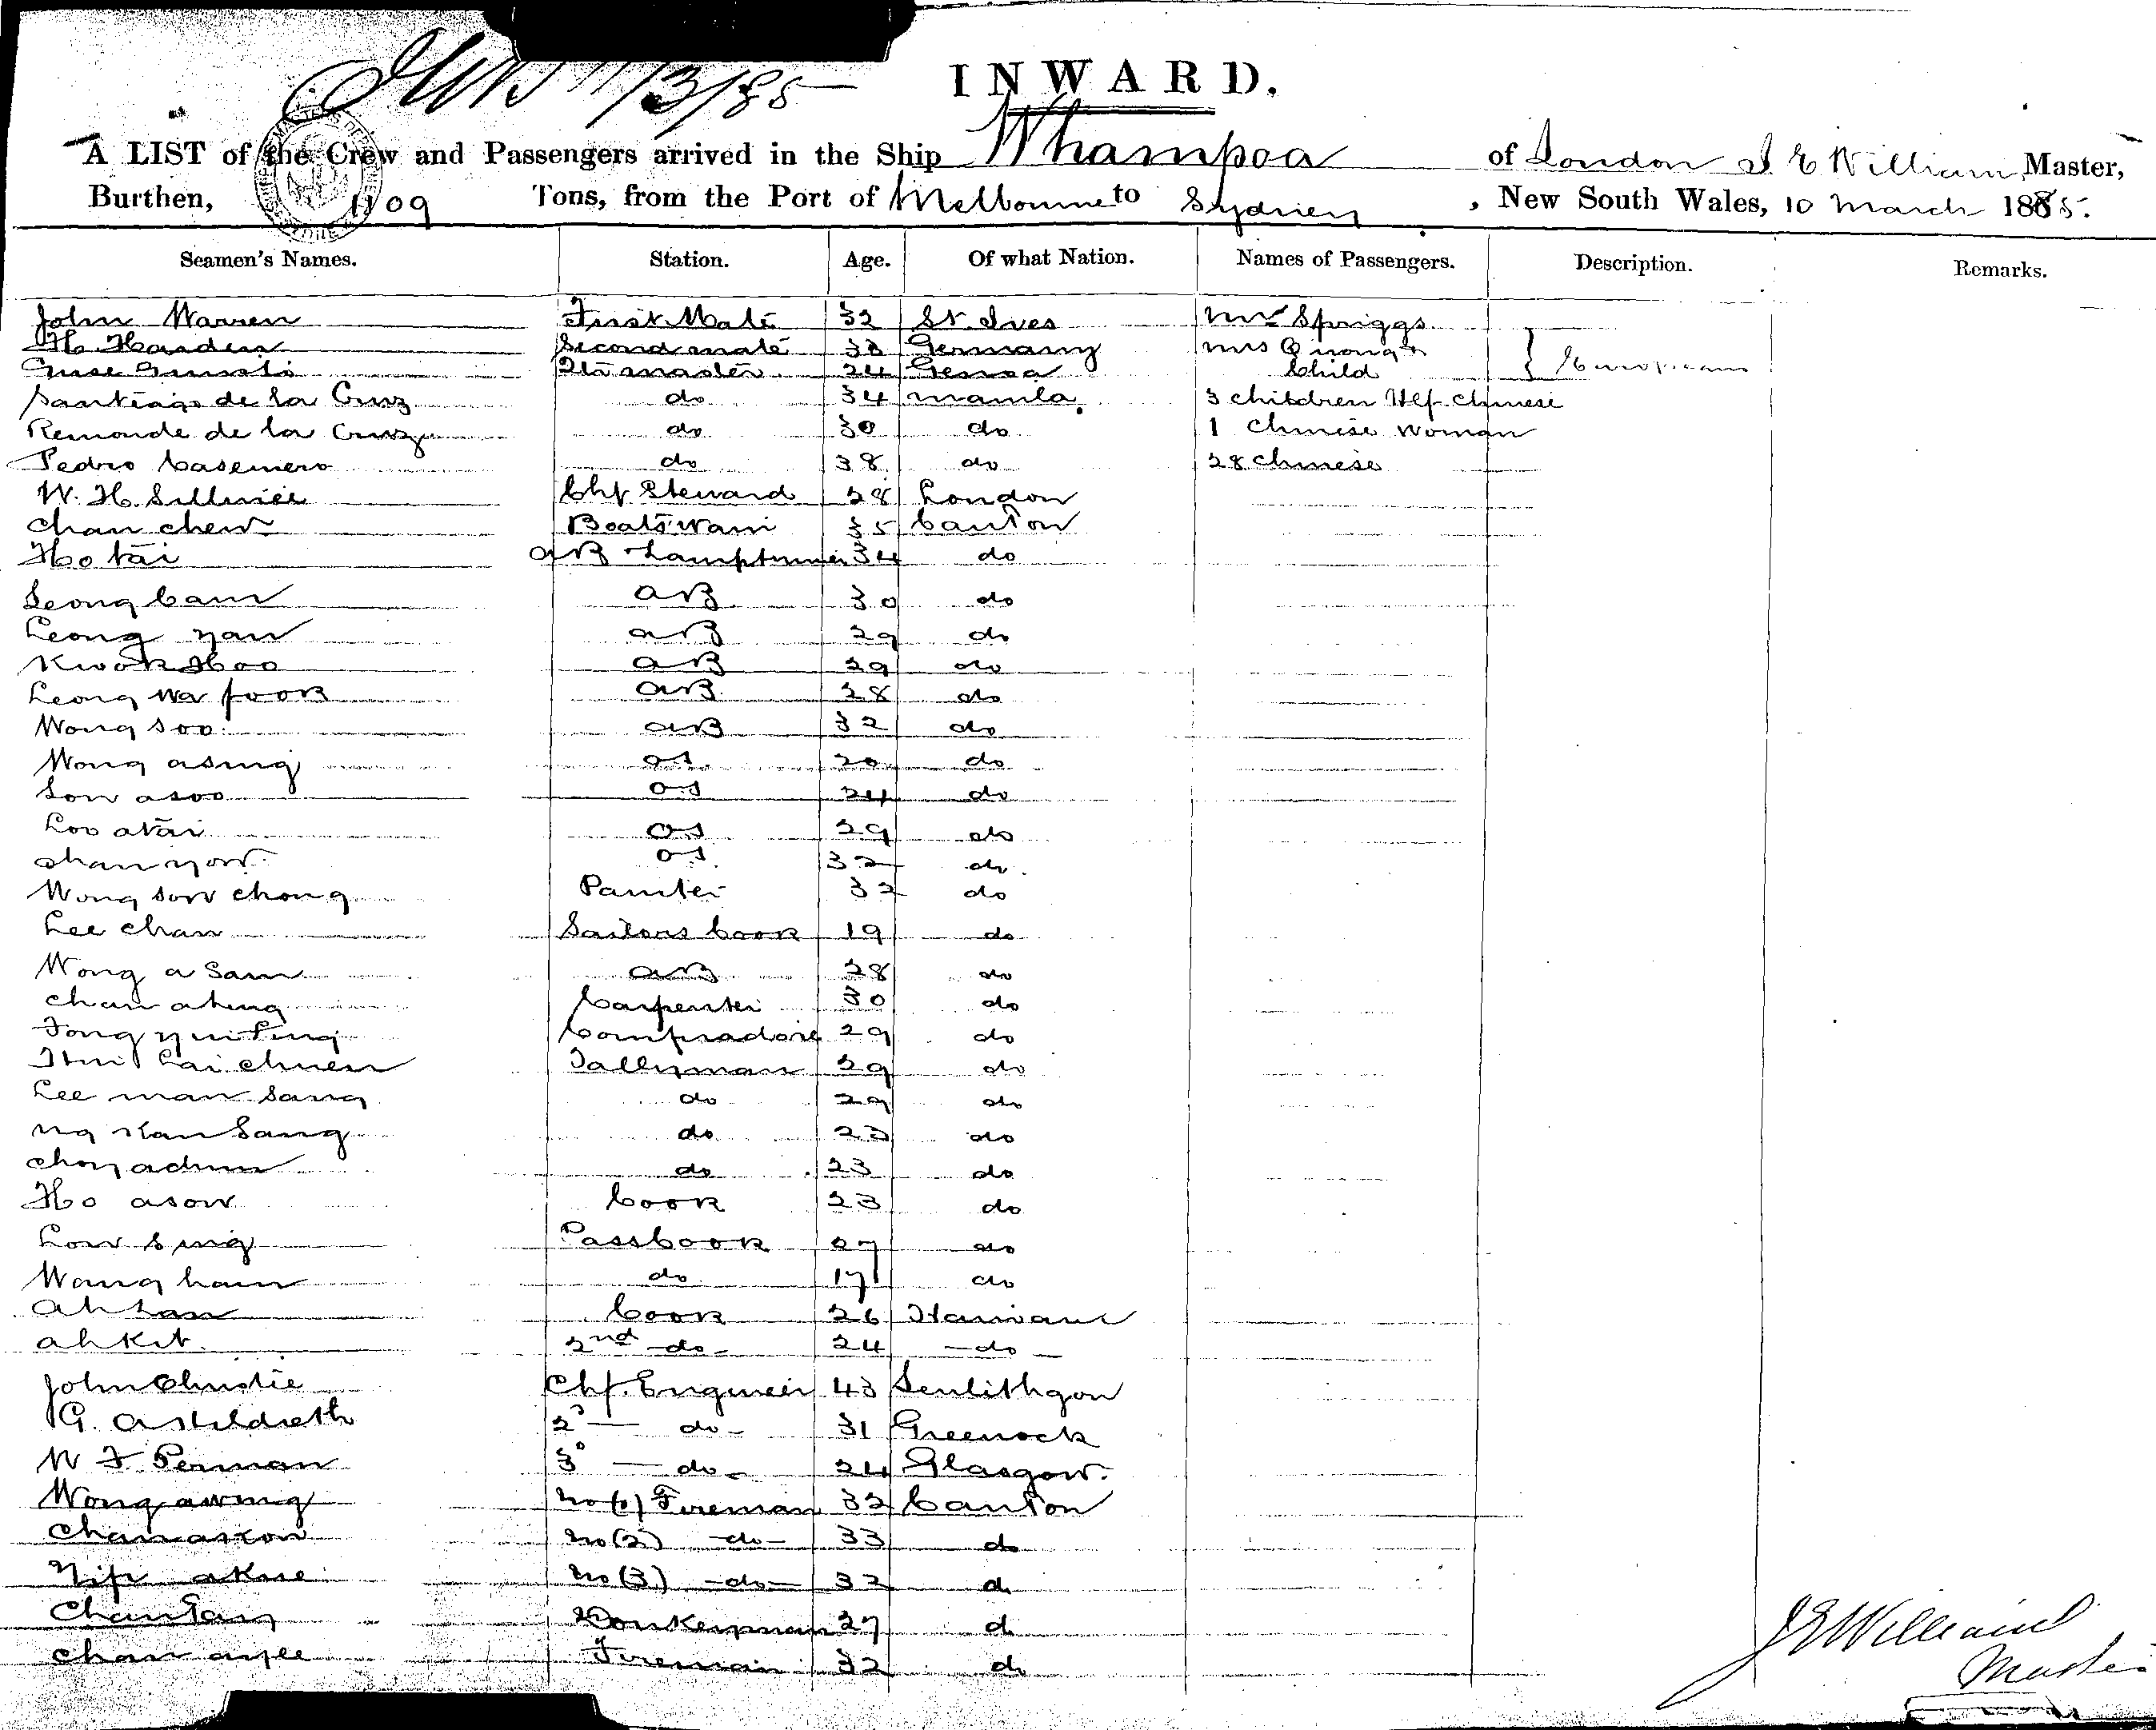 11/3/85
INWARD.
A LIST of the Crew and Passengers arrived in the Ship Whampoa of London J E William Master,
Burthen, 1109 Tons, from the Port of Melbourne to Sydney, New South Wales, 10 March 1885.
Seamen's Names. Station. Age. Of what Nation. Names of Passengers. Description. Remarks.
John Warren First Mate 32 St. Ives Mr Spriggs
H. Harden Second mate 38 Germany Mrs Quong & } European
24 Genoa Child
Santiago de la Cruz do 34 manila. 3 children Hlf chinese
Remonde de la Cruz do 30 do 1 Chinese woman
Pedro Casemero do 38 do 28 Chinese
W. H. Chf Steward 28 London
Chan chew Boatswain 35 Canton
Ho tai AB Lamptrimmer 34 do
Leong Cam AB 30 do
Leong yan AB 29 do
Kwok Hoo AB 29 do
Leong wa fook AB 28 do
Wong soo AB 32 do
Wong asing OS 20 do
Low asoo OS 24 do
Loo atai OS 29 do
Chan yow OS 32 do
Wong sow chong Painter 32 do
Lee chan Sailors Cook 19 do
Wong a Sam AB 28 do
Chan ahung Carpenter 30 do
Tong yui Compradore 29 do
Lai chuen Tallyman 29 do
Lee man Sang do 29 do
Ng Kan Sang do 23 do
Choy do 23 do
Ho asow Cook 23 do
Low Sing Pass Cook 27 do
Wong ham do 17 do
Ah Cook 26 Hainam
ah Kit 2nd do 24 do
John Christie Chf. Engineer 43 Senlithgon
G. A Hildreth 2d do 31 Greenock
W F Penman 3d do 24 Glasgow.
Wong awing No (1) Fireman 32 Canton
Chan askow No (2) do 33 do
Yip akue No (3) do 32 d
Chan Donkeyman 27 d
Chan ayee Fireman 32 do
J E William
Master